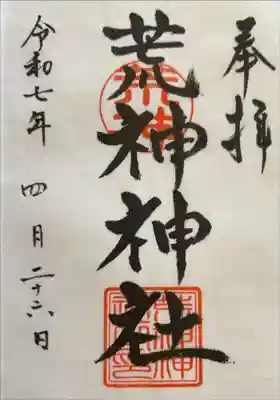 奉拝
荒神神社
令和七年 四月二十六日